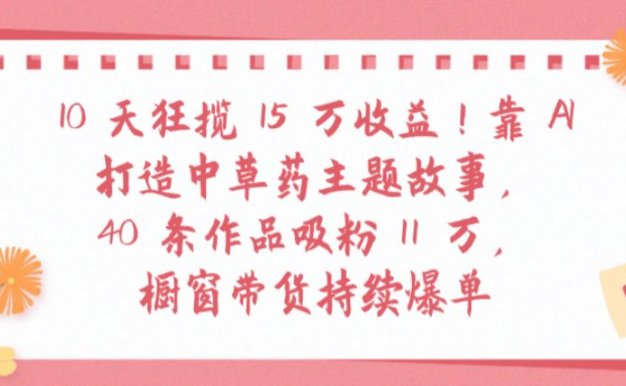 10 天狂揽 15 万收益！靠 AI
打造中草药主题故事，
40 条作品吸粉 11 万，
橱窗带货持续爆单